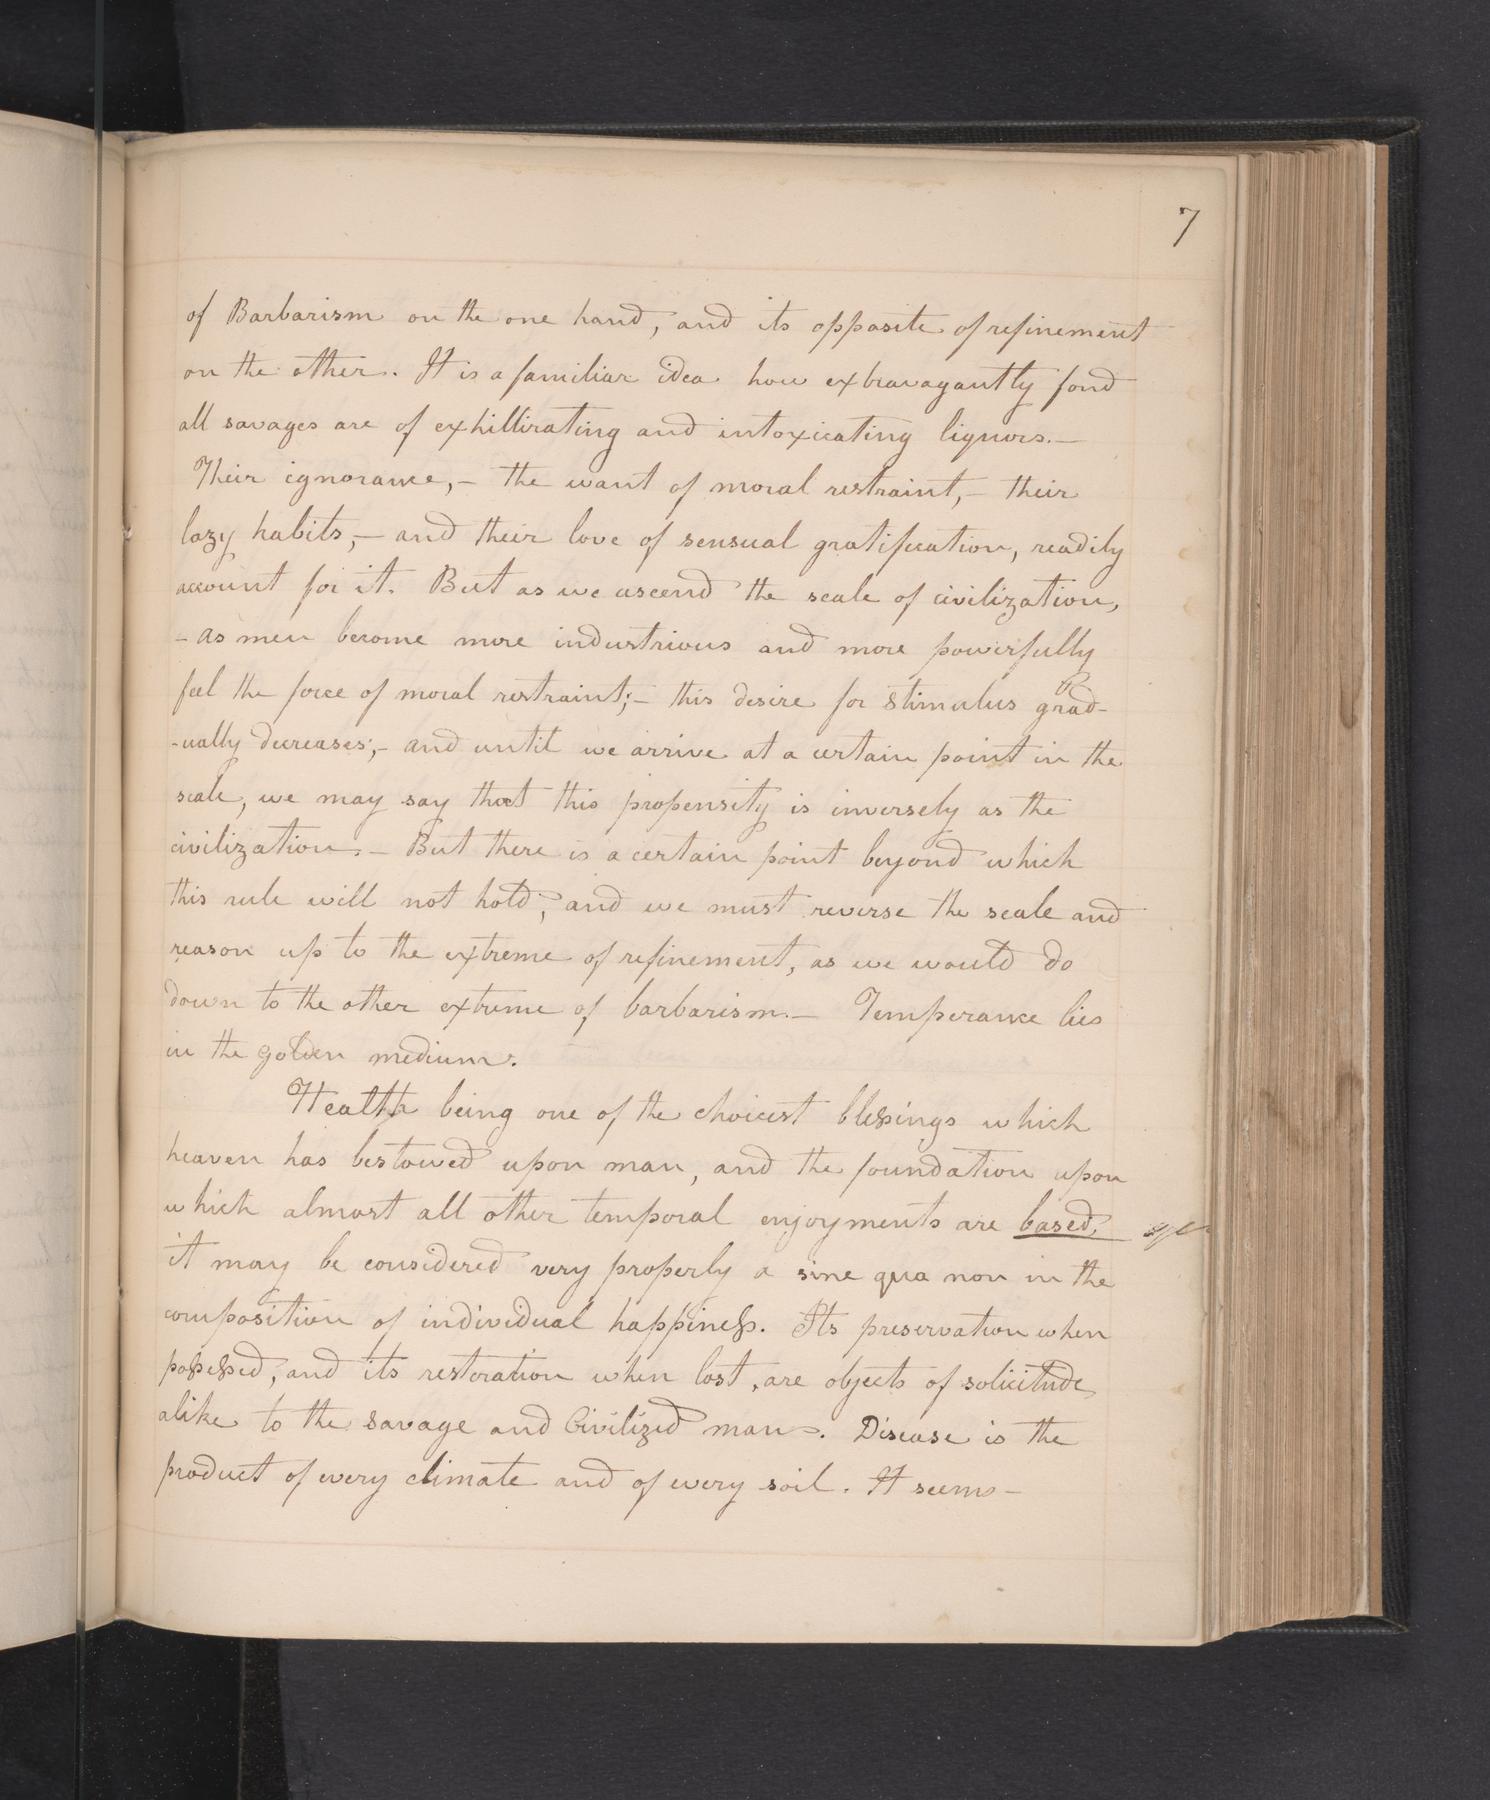 7
of Barbarism on the one hand, and its opposite of refinement
on the other. It is a familiar idea how extravagantly fond
all savages are of exhillirating and intoxicating liquors.—
Their ignorance,— the want of moral restraint,— their
lazy habits,— and their love of sensual gratification, readily
account for it. But as we ascend the scale of civilization,
– as men become more industrious and more powerfully
feel the force of moral restraint;— this desire for stimulus grad-
-ually decreases;— and until we arrive at a certain point in the
scale, we may say that this propensity is inversely as the
civilization.— But there is a certain point beyond which
this rule will not hold, and we must reverse the scale and
reason up to the extreme of refinement, as we would do
down to the other extreme of barbarism.— Temperance lies
in the golden medium.
Health being one of the choicest blessings which
heaven has bestowed upon man, and the foundation upon
which almost all other temporal enjoyments are based,
it may be considered very properly a sine qua non in the
composition of individual happiness. Its preservation when
possessed, and its restoration when lost, are objects of solicitude
alike to the savage and Civilized man. Disease is the
product of every climate and of every soil. It seems—